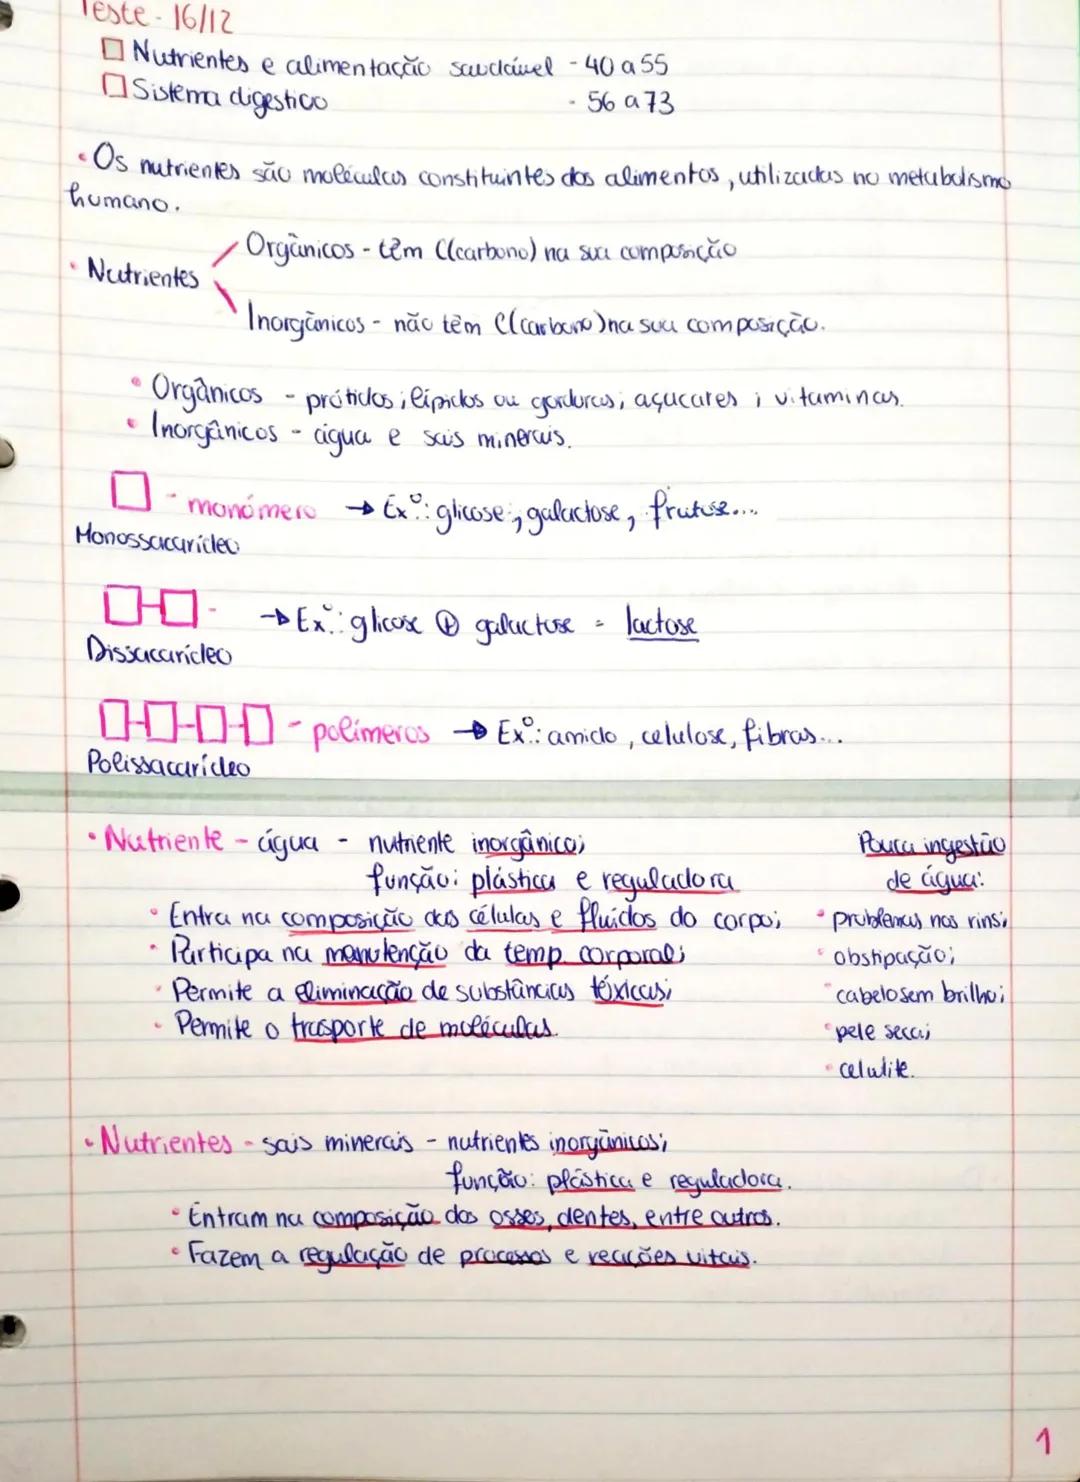 Teste - 16/12
Nutrientes e alimentação saudável - 40 a 55
Sistema digestico - 56 a 73
• Os nutrientes são moléculas constituintes dos alimentos, utilizadas no metabolismo
humano.
Orgânicos - têm C(carbono) na sua composição
• Nutrientes
Inorgânicos - não têm C(carbono) na sua composição.
• Orgânicos - prótidos; lípidos ou gorduras; açucares; vitaminas.
• Inorgânicos - água e sais minerais.
- monómero → Exº: glicose; galactose, frutose...
Monossacarídeo
- → Exº: glicose + galactose = lactose
Dissacarídeo
- polímeros → Exº: amido, celulose, fibras...
Polissacarídeo
• Nutriente - água - nutriente inorgânico;
função: plástica e reguladora
• Entra na composição das células e fluidos do corpo;
• Participa na manutenção da temp. corporal;
• Permite a eliminação de substâncias tóxicas;
• Permite o trasporte de moléculas.
Pouca ingestão
de água:
• problemas nos rins;
• obstipação;
• cabelo sem brilho;
• pele seca;
• celulite.
• Nutrientes - sais minerais - nutrientes inorgânicos;
função: plástica e reguladora.
• Entram na composição dos osses, dentes, entre outros.
• Fazem a regulação de processos e reações vitais.
1